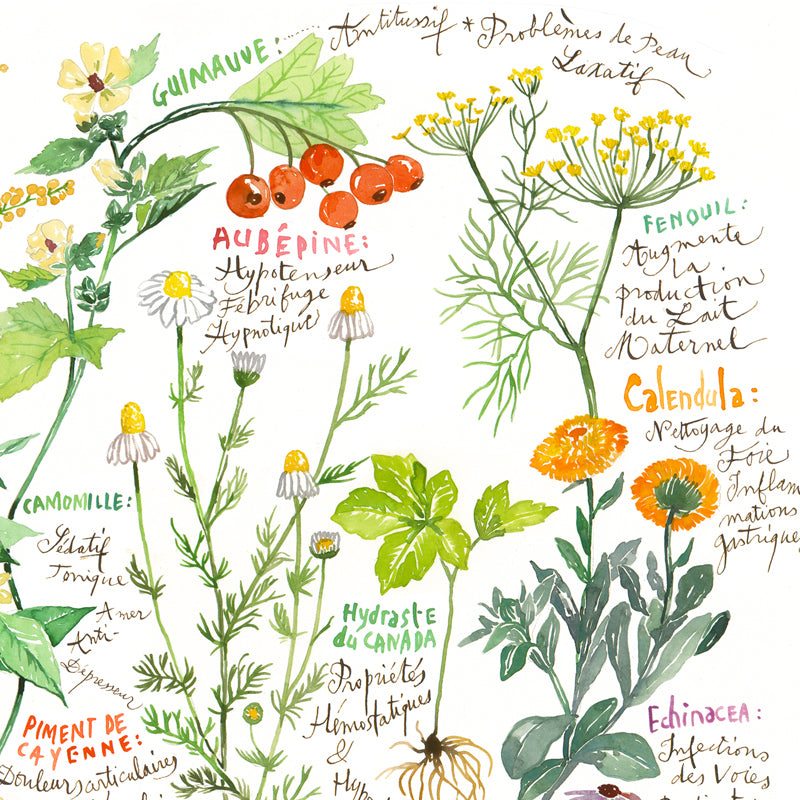 GUIMAUVE:
Antitussif * Problèmes de Peau
Laxatif
AUBÉPINE:
Hypotenseur
Fébrifuge
Hypnotique
FENOUIL:
Augmente
la
production
du Lait
Maternel
Calendula:
Nettoyage du
Foie
Inflam
mations
gastrique
CAMOMILLE:
Sédatif
Tonique
Amer
Anti-
Dépresseur
Hydraste
du CANADA
Propriétés
Hémostatiques
&
Hypo
PIMENT DE
CAYENNE:
Douleurs articulaires
Echinacea:
Infections
des Voies